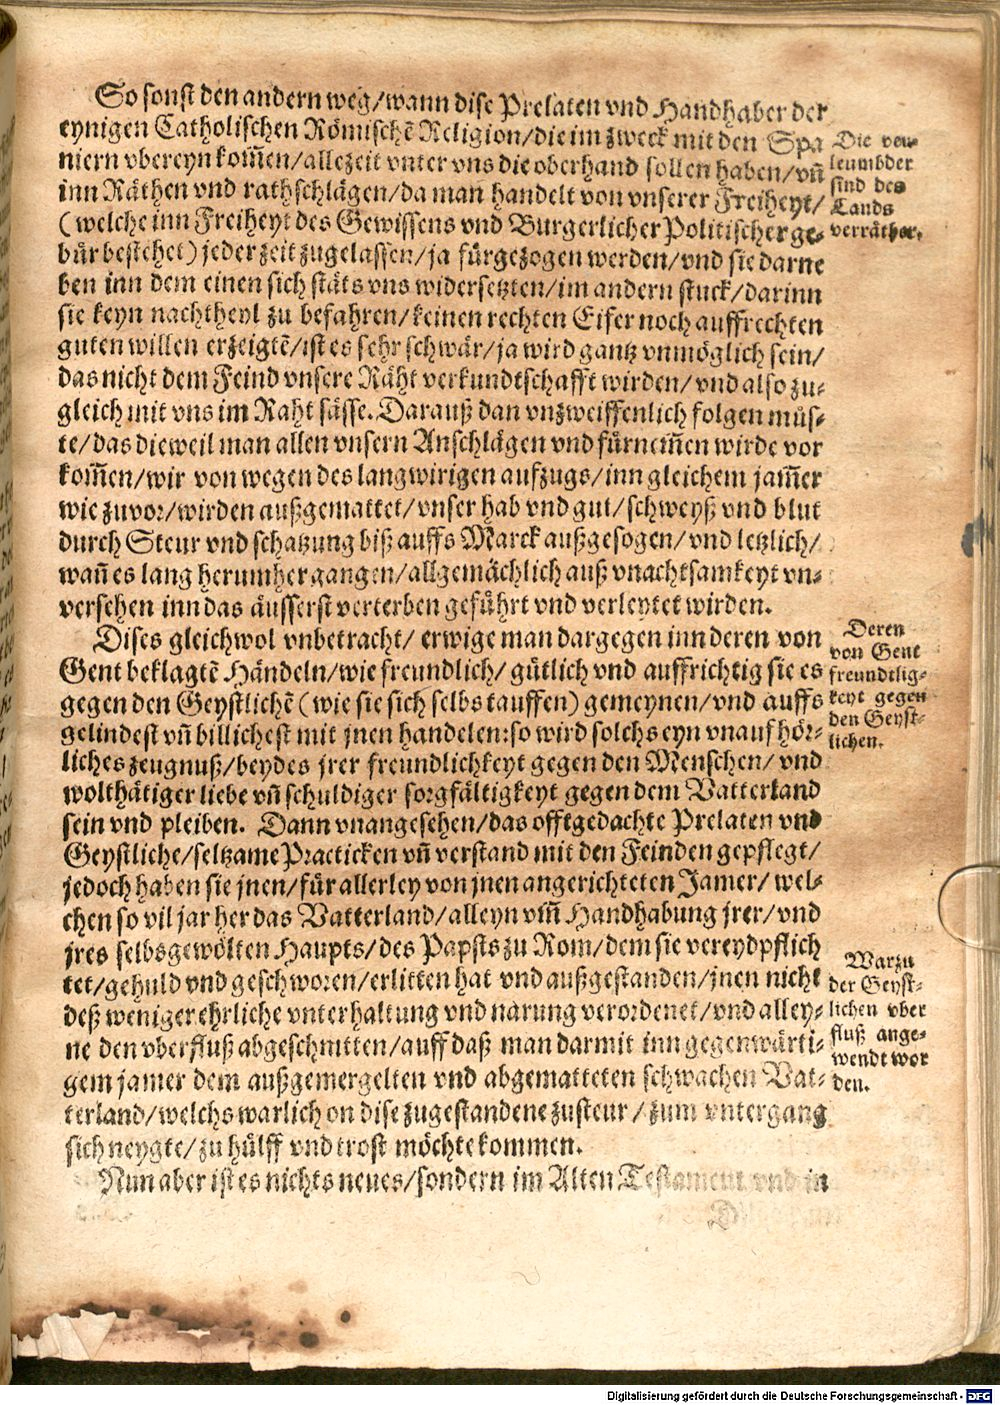 So sonst den andern weg/wann dise Prelaten vnd Handhaber der
eynigen Catholischen Römischē Religion/die im zweck mit den Spa
niern vbereyn kom̄en/allezeit vnter vns die oberhand sollen haben/vn̄
inn Räthen vnd rathschlägen/da man handelt von vnserer Freiheyt/
(welche inn Freiheyt des Gewissens vnd Burgerlicher Politischer ge-
bür bestehet) jeder zeit zugelassen/ja fürgezogen werden/vnd sie darne
ben inn dem einen sich stäts vns widersetzten/im andern stuck/darinn
sie keyn nachtheyl zu befahren/keinen rechten Eifer noch auffrechten
guten willen erzeigtē/ist es sehr schwär/ja wird gantz vnmöglich sein/
das nicht dem Feind vnsere Räht verkundtschafft wirden/vnd also zu-
gleich mit vns im Raht sässe. Darauß dan vnzweiffenlich folgen müs-
te/das dieweil man allen vnsern Anschlägen vnd fürnem̄en wirde vor
kom̄en/wir von wegen des langwirigen aufzugs/inn gleichem jam̄er
wie zuvor/wirden außgemattet/vnser hab vnd gut/schweyß vnd blut
durch Steur vnd schatzung biß auffs Marck außgesogen/vnd letzlich/
wan̄ es lang herumher gangen/allgemächlich auß vnachtsamkeyt vn-
versehen inn das äusserst verterben geführt vnd verleytet wirden.
Dises gleichwol vnbetracht/ erwige man dargegen inn deren von
Gent beklagtē Händeln/wie freundlich/ gütlich vnd auffrichtig sie es
gegen den Geystlichē (wie sie sich selbs tauffen) gemeynen/vnd auffs
gelindest vn̄ billichest mit jnen handelen: so wird solchs eyn vnaufhör-
liches zeugnuß/beydes jrer freundlichkeyt gegen den Menschen/ vnd
wolthätiger liebe vn̄ schuldiger sorgfältigkeyt gegen dem Vatterland
sein vnd pleiben. Dann vnangesehen/das offtgedachte Prelaten vnd
Geystliche/seltzame Practicken vn̄ verstand mit den Feinden gepflegt/
jedoch haben sie jnen/für allerley von jnen angerichteten Jamer/ wel-
chen so vil jar her das Vatterland/alleyn vm̄ Handhabung jrer/vnd
jres selbsgewölten Haupts/des Papsts zu Rom/dem sie vereydpflich
tet/gehuld vnd geschworen/erlitten hat vnd außgestanden/jnen nicht
deß weniger ehrliche vnterhaltung vnd narung verordenet/vnd alley-
ne den vberfluß abgeschnitten/auff daß man darmit inn gegenwärti-
gem jamer dem außgemergelten vnd abgematteten schwachen Vat-
terland/welchs warlich on dise zugestandene zusteur/zum vntergang
sich neygte/zu hülff vnd trost möchte kommen.
Nun aber ist es nichts neues/sondern im Alten Testament vnd in
Die ver-
leumbder
sind des
Lands
verräther.
Deren
von Gent
freundtlig-
keyt gegen
den Geyst-
lichen.
Warzu
der Geyst-
lichen vber
fluß ange-
wendt wor
den.
Digitalisierung gefördert durch die Deutsche Forschungsgemeinschaft - DFG